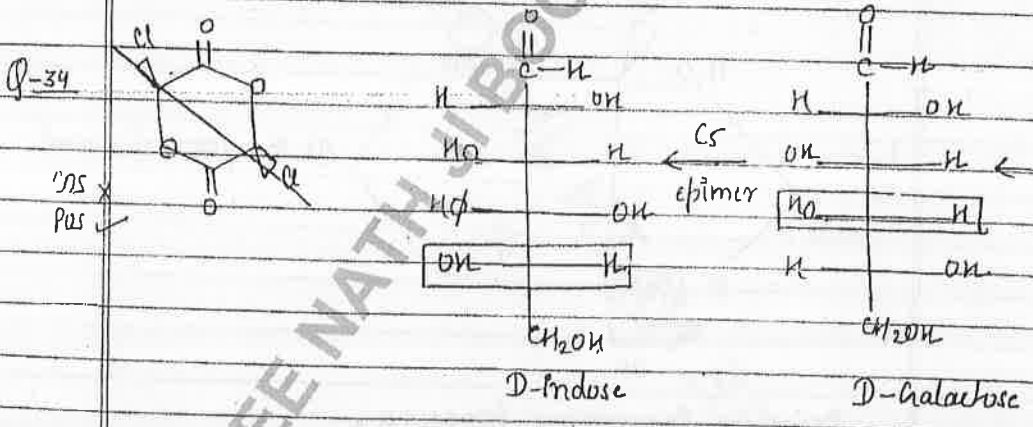 Q-34
Cl
O
O
O
O
Cl
cos ×
pos ✓
O
C—H
H OH
HO H
HO OH
OH H
CH2OH
D-Indose
C5
epimer
O
C—H
H OH
OH H
HO H
H OH
CH2OH
D-Galactose
EE NATH JI BOO